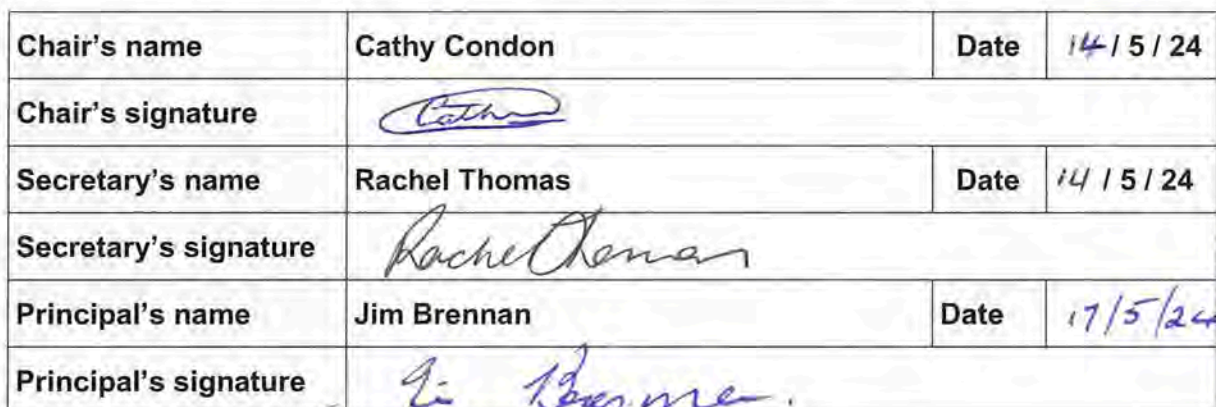 Chair's name Cathy Condon Date 14 / 5 / 24
Chair's signature Cath
Secretary's name Rachel Thomas Date 14 / 5 / 24
Secretary's signature Rachel Thomas
Principal's name Jim Brennan Date 17/5/24
Principal's signature Jim Brennan.